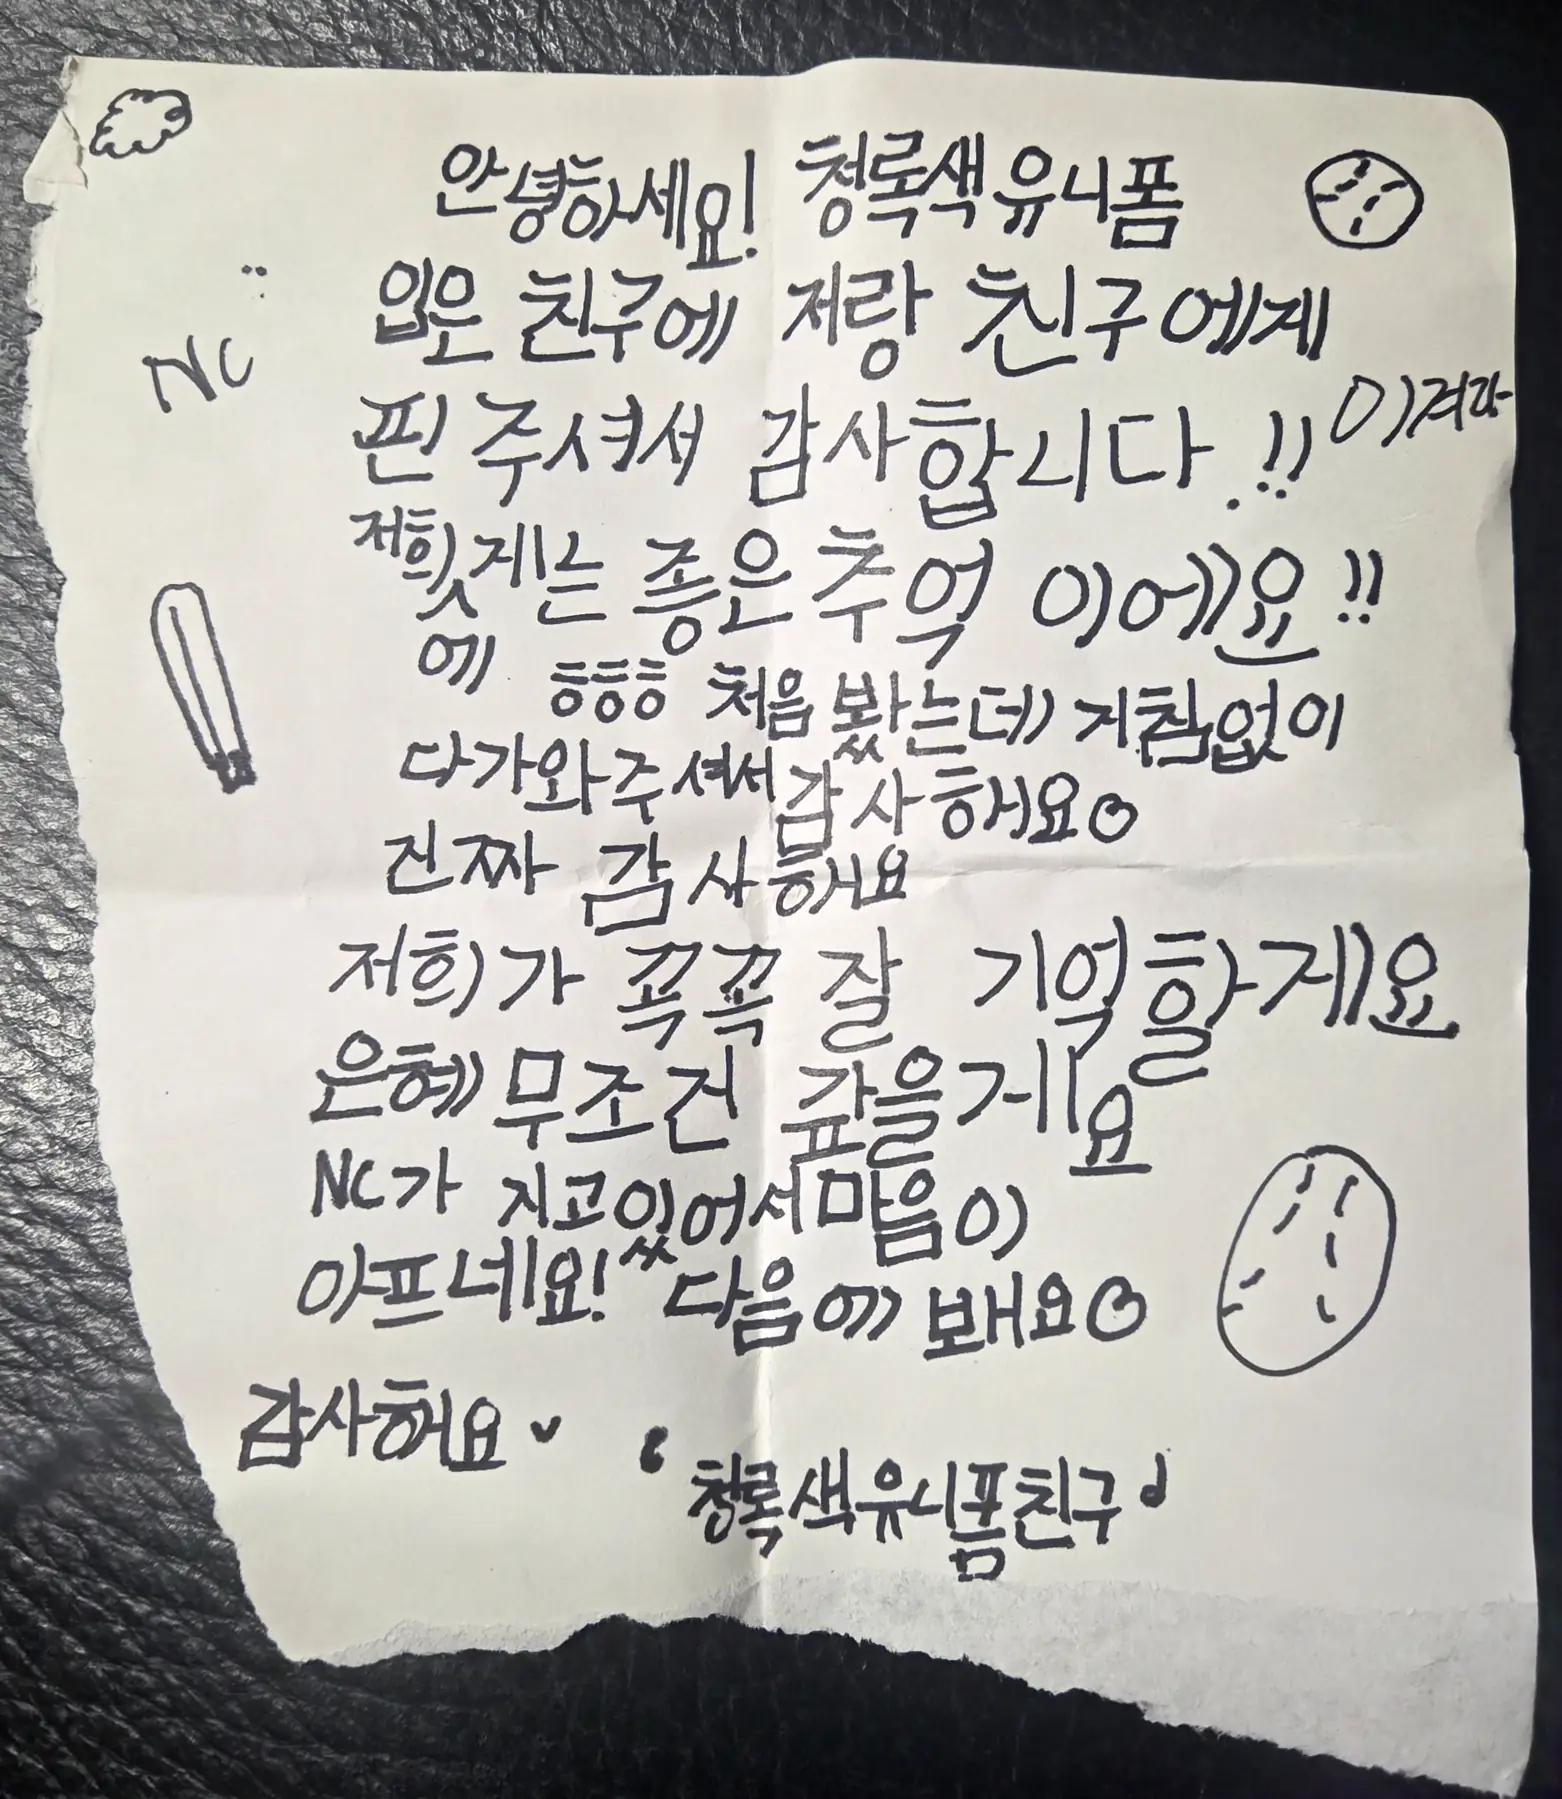 안녕하세요! 청록색 유니폼
입은 친구에 저랑 친구에게
NC
핀 주셔서 감사합니다.!!
이겨라
저희 에게는 좋은 추억 이에요!!
ㅎㅎㅎ 처음 봤는데 거침없이
다가와주셔서 감사해요
진짜 감사해요
저희가 꼭꼭 잘 기억할게요
은혜 무조건 갚을게요
NC가 지고있어서 마음이
아프네요! 다음에 봬요
감사해요
청록색유니폼친구